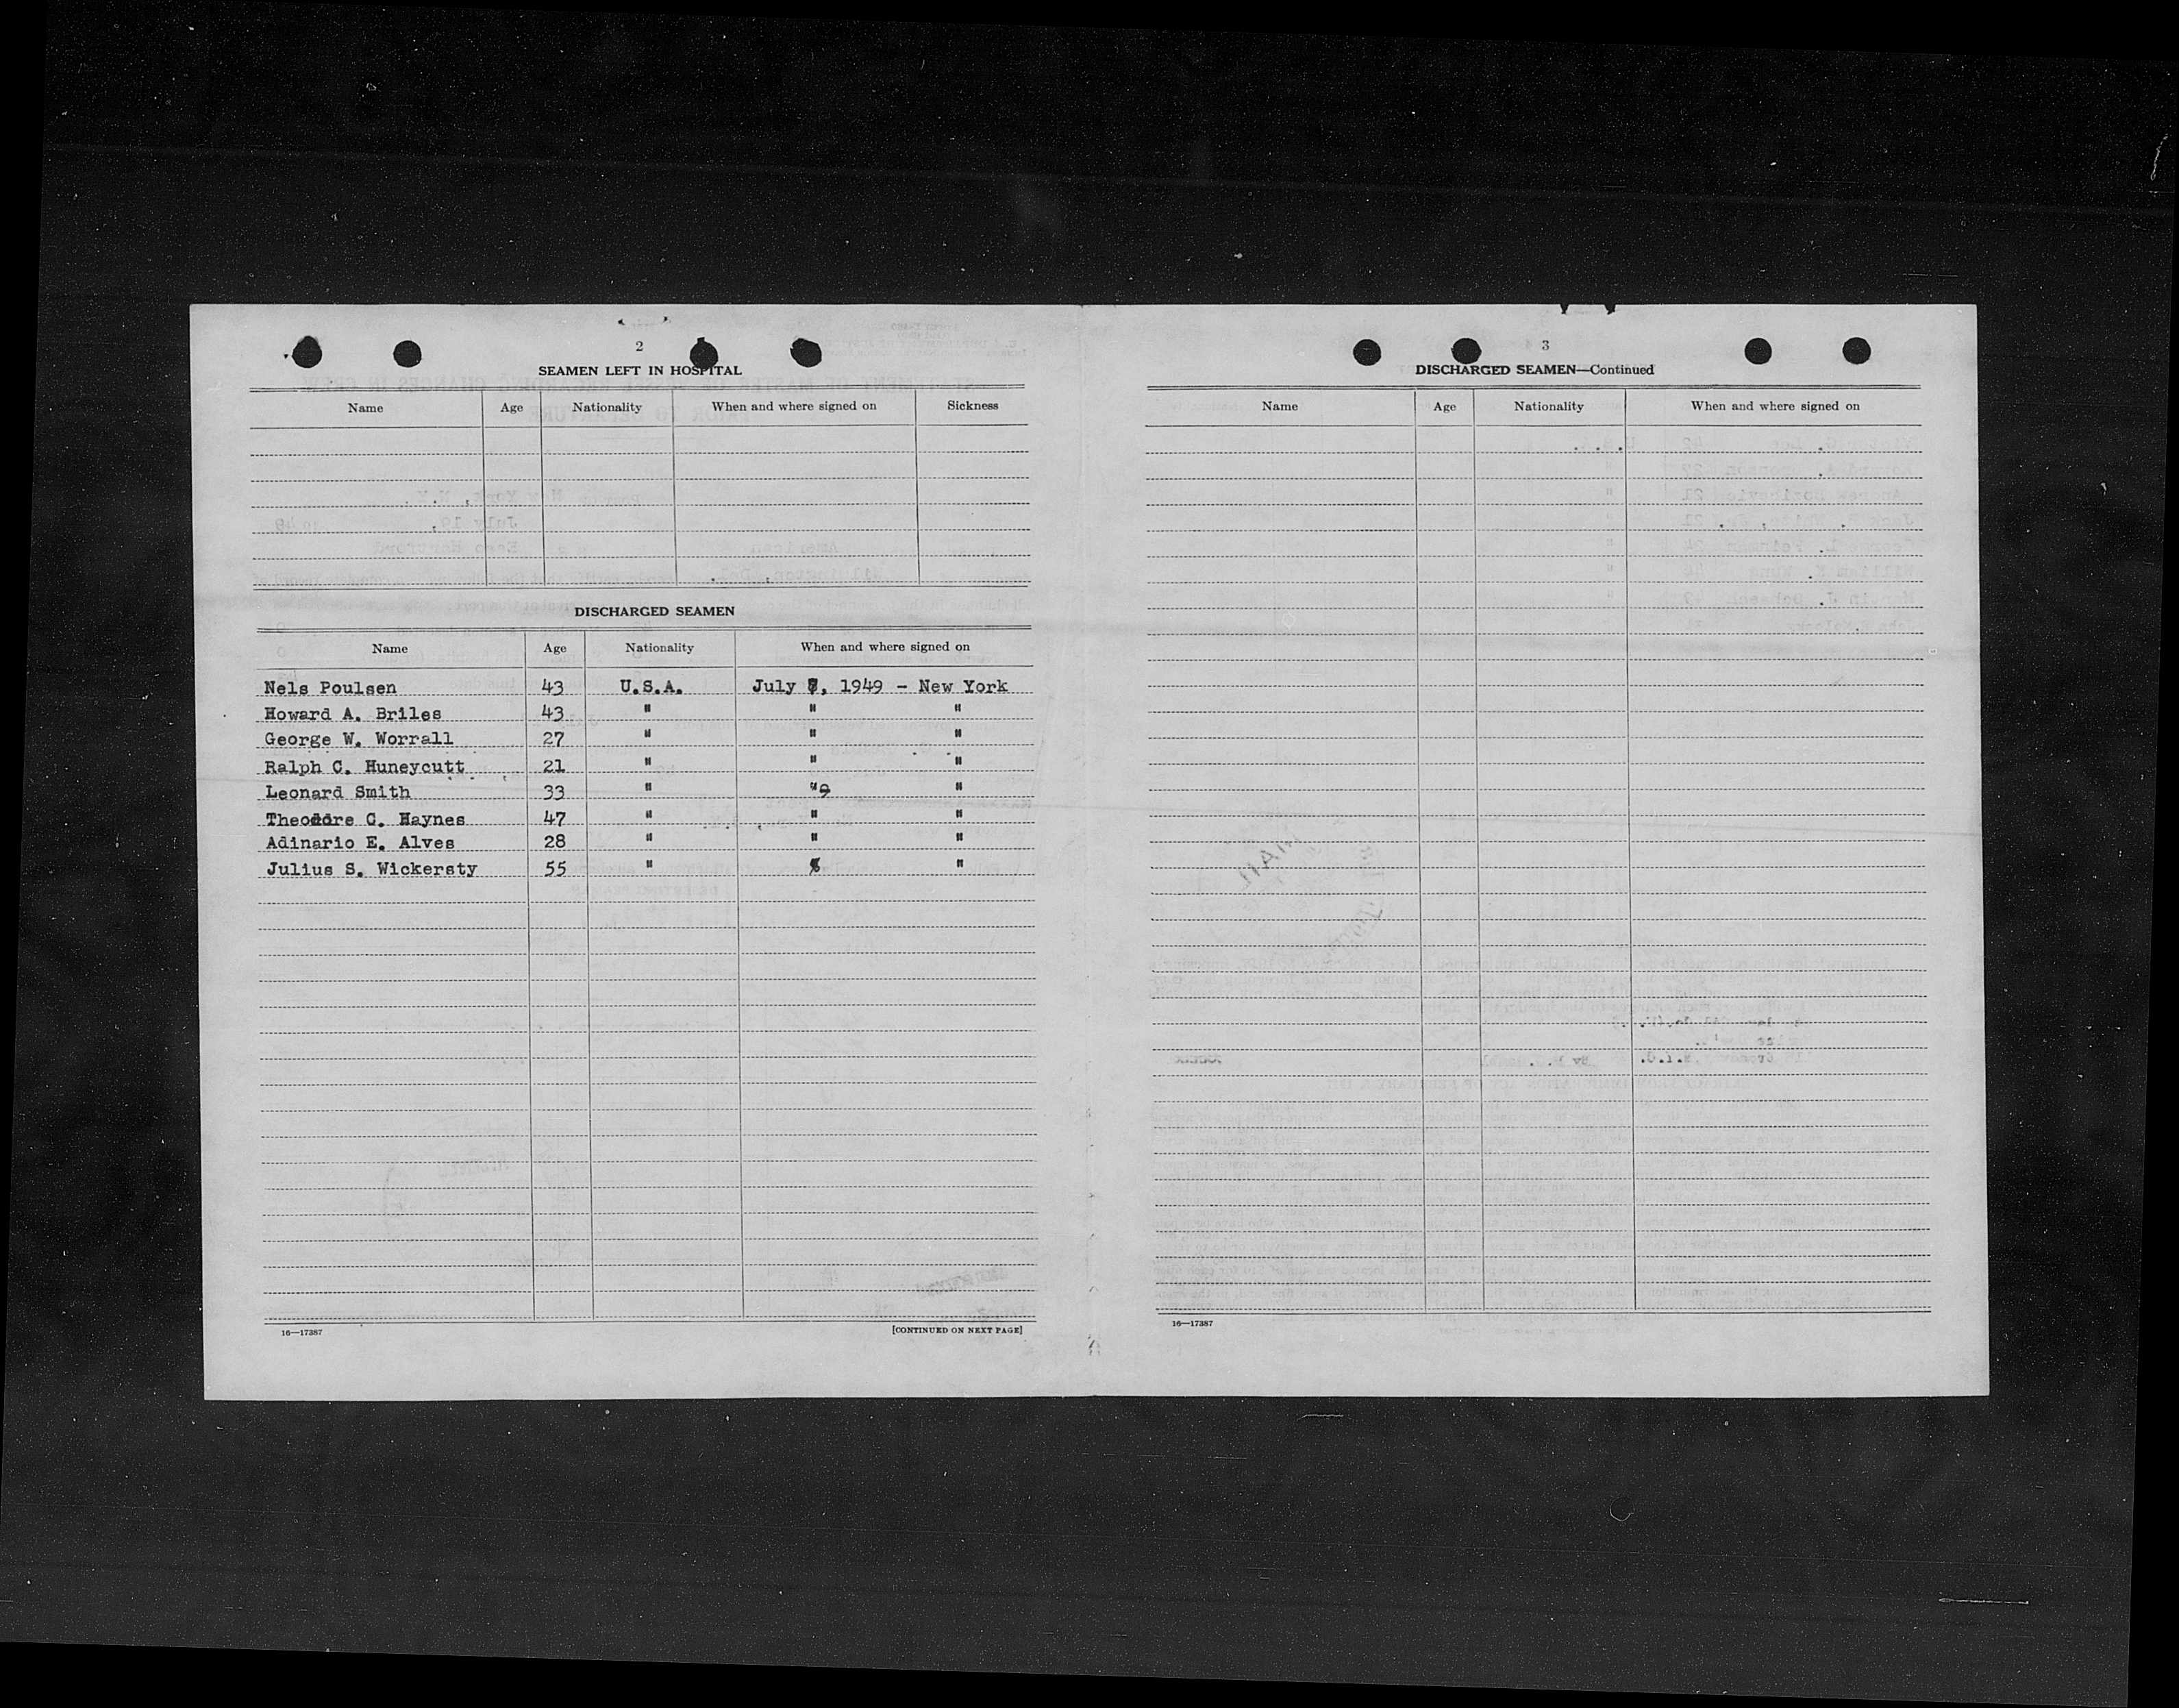 2
SEAMEN LEFT IN HOSPITAL
Name Age Nationality When and where signed on Sickness
DISCHARGED SEAMEN
Name Age Nationality When and where signed on
Nels Poulsen 43 U.S.A. July , 1949 - New York
Howard A. Briles 43 " " "
George W. Worrall 27 " " "
Ralph C. Huneycutt 21 " " "
Leonard Smith 33 " " "
Theodore C. Haynes 47 " " "
Adinario E. Alves 28 " " "
Julius S. Wickersty 55 " "
16—17387 [CONTINUED ON NEXT PAGE]
3
DISCHARGED SEAMEN—Continued
Name Age Nationality When and where signed on
16—17387